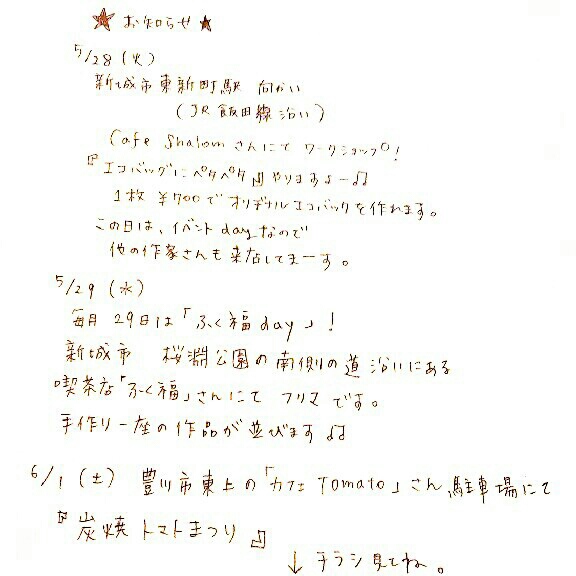 ★ お知らせ ★
5/28 (火)
新城市東新町駅 向かい
(JR飯田線沿い)
Cafe Shalomさんにて ワークショップ!
『エコバッグにペタペタ』やりますよー♫
1枚 ¥700で オリヂナルエコバックを作れます。
この日は、イベントdayなので
他の作家さんも来店してまーす。
5/29 (水)
毎月 29日は「ふく福day」!
新城市 桜淵公園の南側の道沿いにある
喫茶店「ふく福」さんにて フリマです。
手作り一座の作品が並びます♫
6/1 (土) 豊川市東上の「カフェTomato」さん駐車場にて
『炭焼トマトまつり』
↓ チラシ見てね。